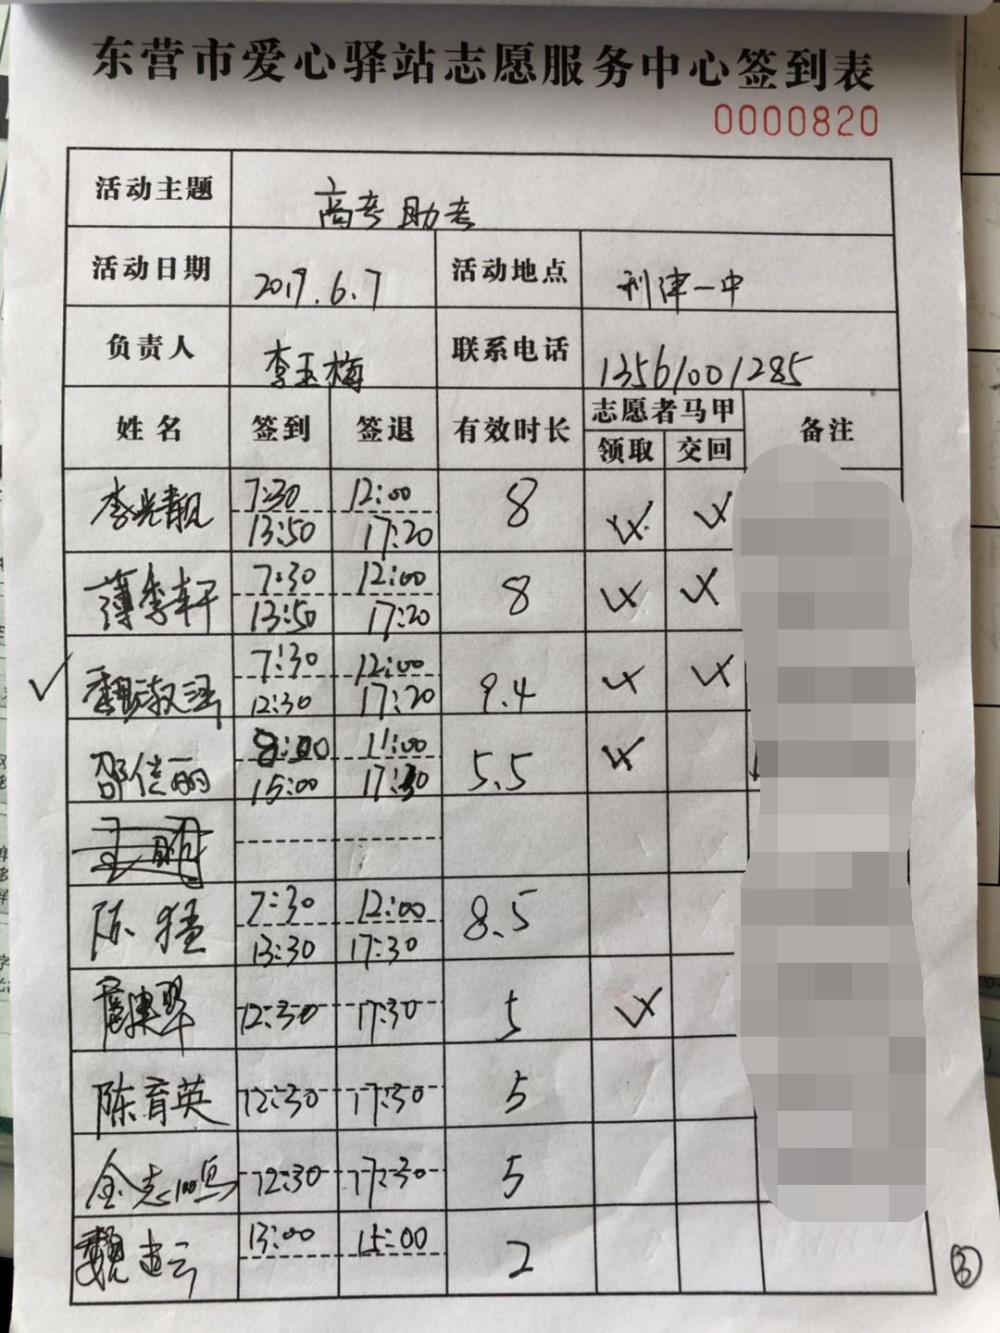 东营市爱心驿站志愿服务中心签到表
0000820
活动主题 高考助考
活动日期 2017.6.7 活动地点 利津一中
负责人 李玉梅 联系电话 13561001285
姓名 签到 签退 有效时长 志愿者马甲 备注
领取 交回
李光靓 7:30 12:00 8
13:50 17:20
薄李轩 7:30 12:00 8
13:50 17:20
7:30 12:00 9.4
12:30 17:20
邵佳丽 8:00 11:00 5.5
15:00 17:30
陈猛 7:30 12:00 8.5
13:30 17:30
12:30 17:30 5
陈育英 12:30 17:30 5
金志鸣 12:30 17:30 5
魏建云 13:00 15:00 2
③